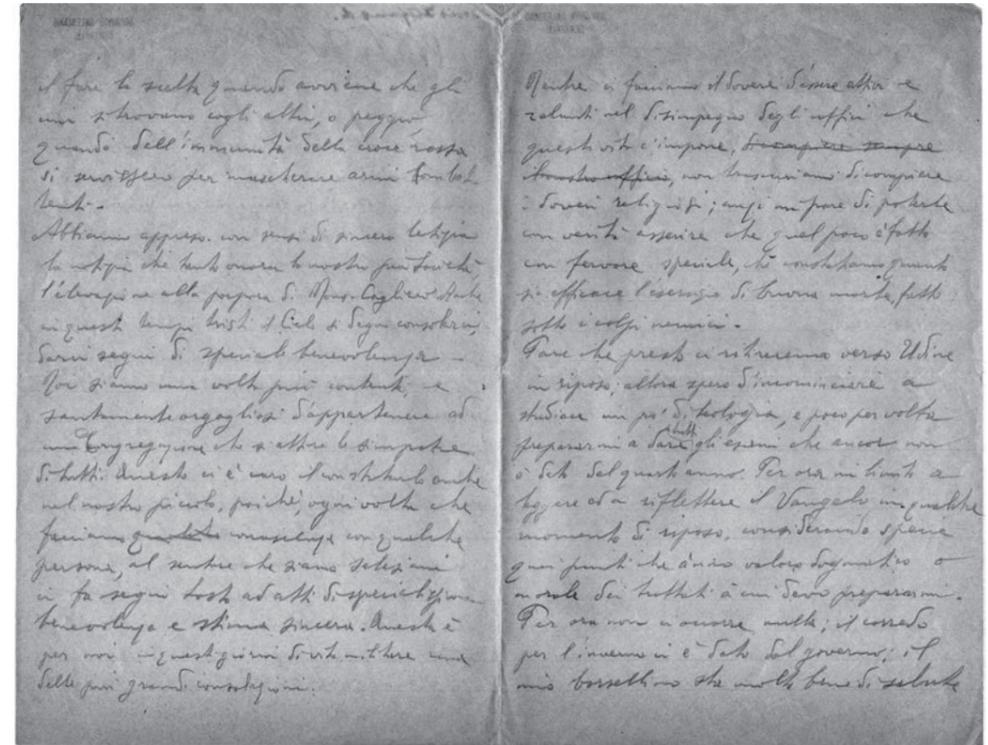 il fare la scelta quando avviene che gli
uni si trovano cogli altri, o peggio
quando dell'immunità della croce rossa
si servissero per mascherare armi e combat
tenti.
Abbiamo appreso con sensi di sincera letizia
la notizia che tanto onora la nostra Società,
l'elevazione alla porpora di Mons. Cagliero. Anche
in questi tempi tristi il Cielo si degni consolarci,
darci segni di speciale benevolenza.
Noi siamo una volta più contenti, e
santamente orgogliosi d'appartenere ad
una Congregazione che si attira le simpatie
di tutti. Questo ci è caro il constatarlo anche
nel nostro piccolo, poiché, ogni volta che
facciamo conoscenza con qualche
persona, al sentire che siamo salesiani
ci fa segni tosto ad atti di speciale
benevolenza e stima sincera. Questa è
per noi in questi giorni di vita militare una
delle più grandi consolazioni.
Mentre ci facciamo il dovere d'essere attivi e
zelanti nel disimpegno degli uffici che
questa vita c'impone, di compiere sempre
il nostro ufficio, non trascuriamo di compiere
i doveri religiosi; anzi mi pare di poterle
con verità asserire che quel poco è fatto
con fervore speciale, ché constatiamo quanto
sia efficace l'esercizio di buona morte, fatto
sotto i colpi nemici.
Pare che presto ci ritireremo verso Udine
in riposo; allora spero d'incominciare a
studiare un po' di teologia, e poco per volta
prepararmi a dare tutti gli esami che ancor non
ò dato del quart'anno. Per ora mi limito a
leggere ed a riflettere il Vangelo in qualche
momento di riposo, considerando specie
quei punti che ànno valore dogmatico o
morale dei trattati a cui devo prepararmi.
Per ora non ci occorre nulla; il corredo
per l'inverno ci è dato dal governo; il
mio borsellino sta molto bene di salute